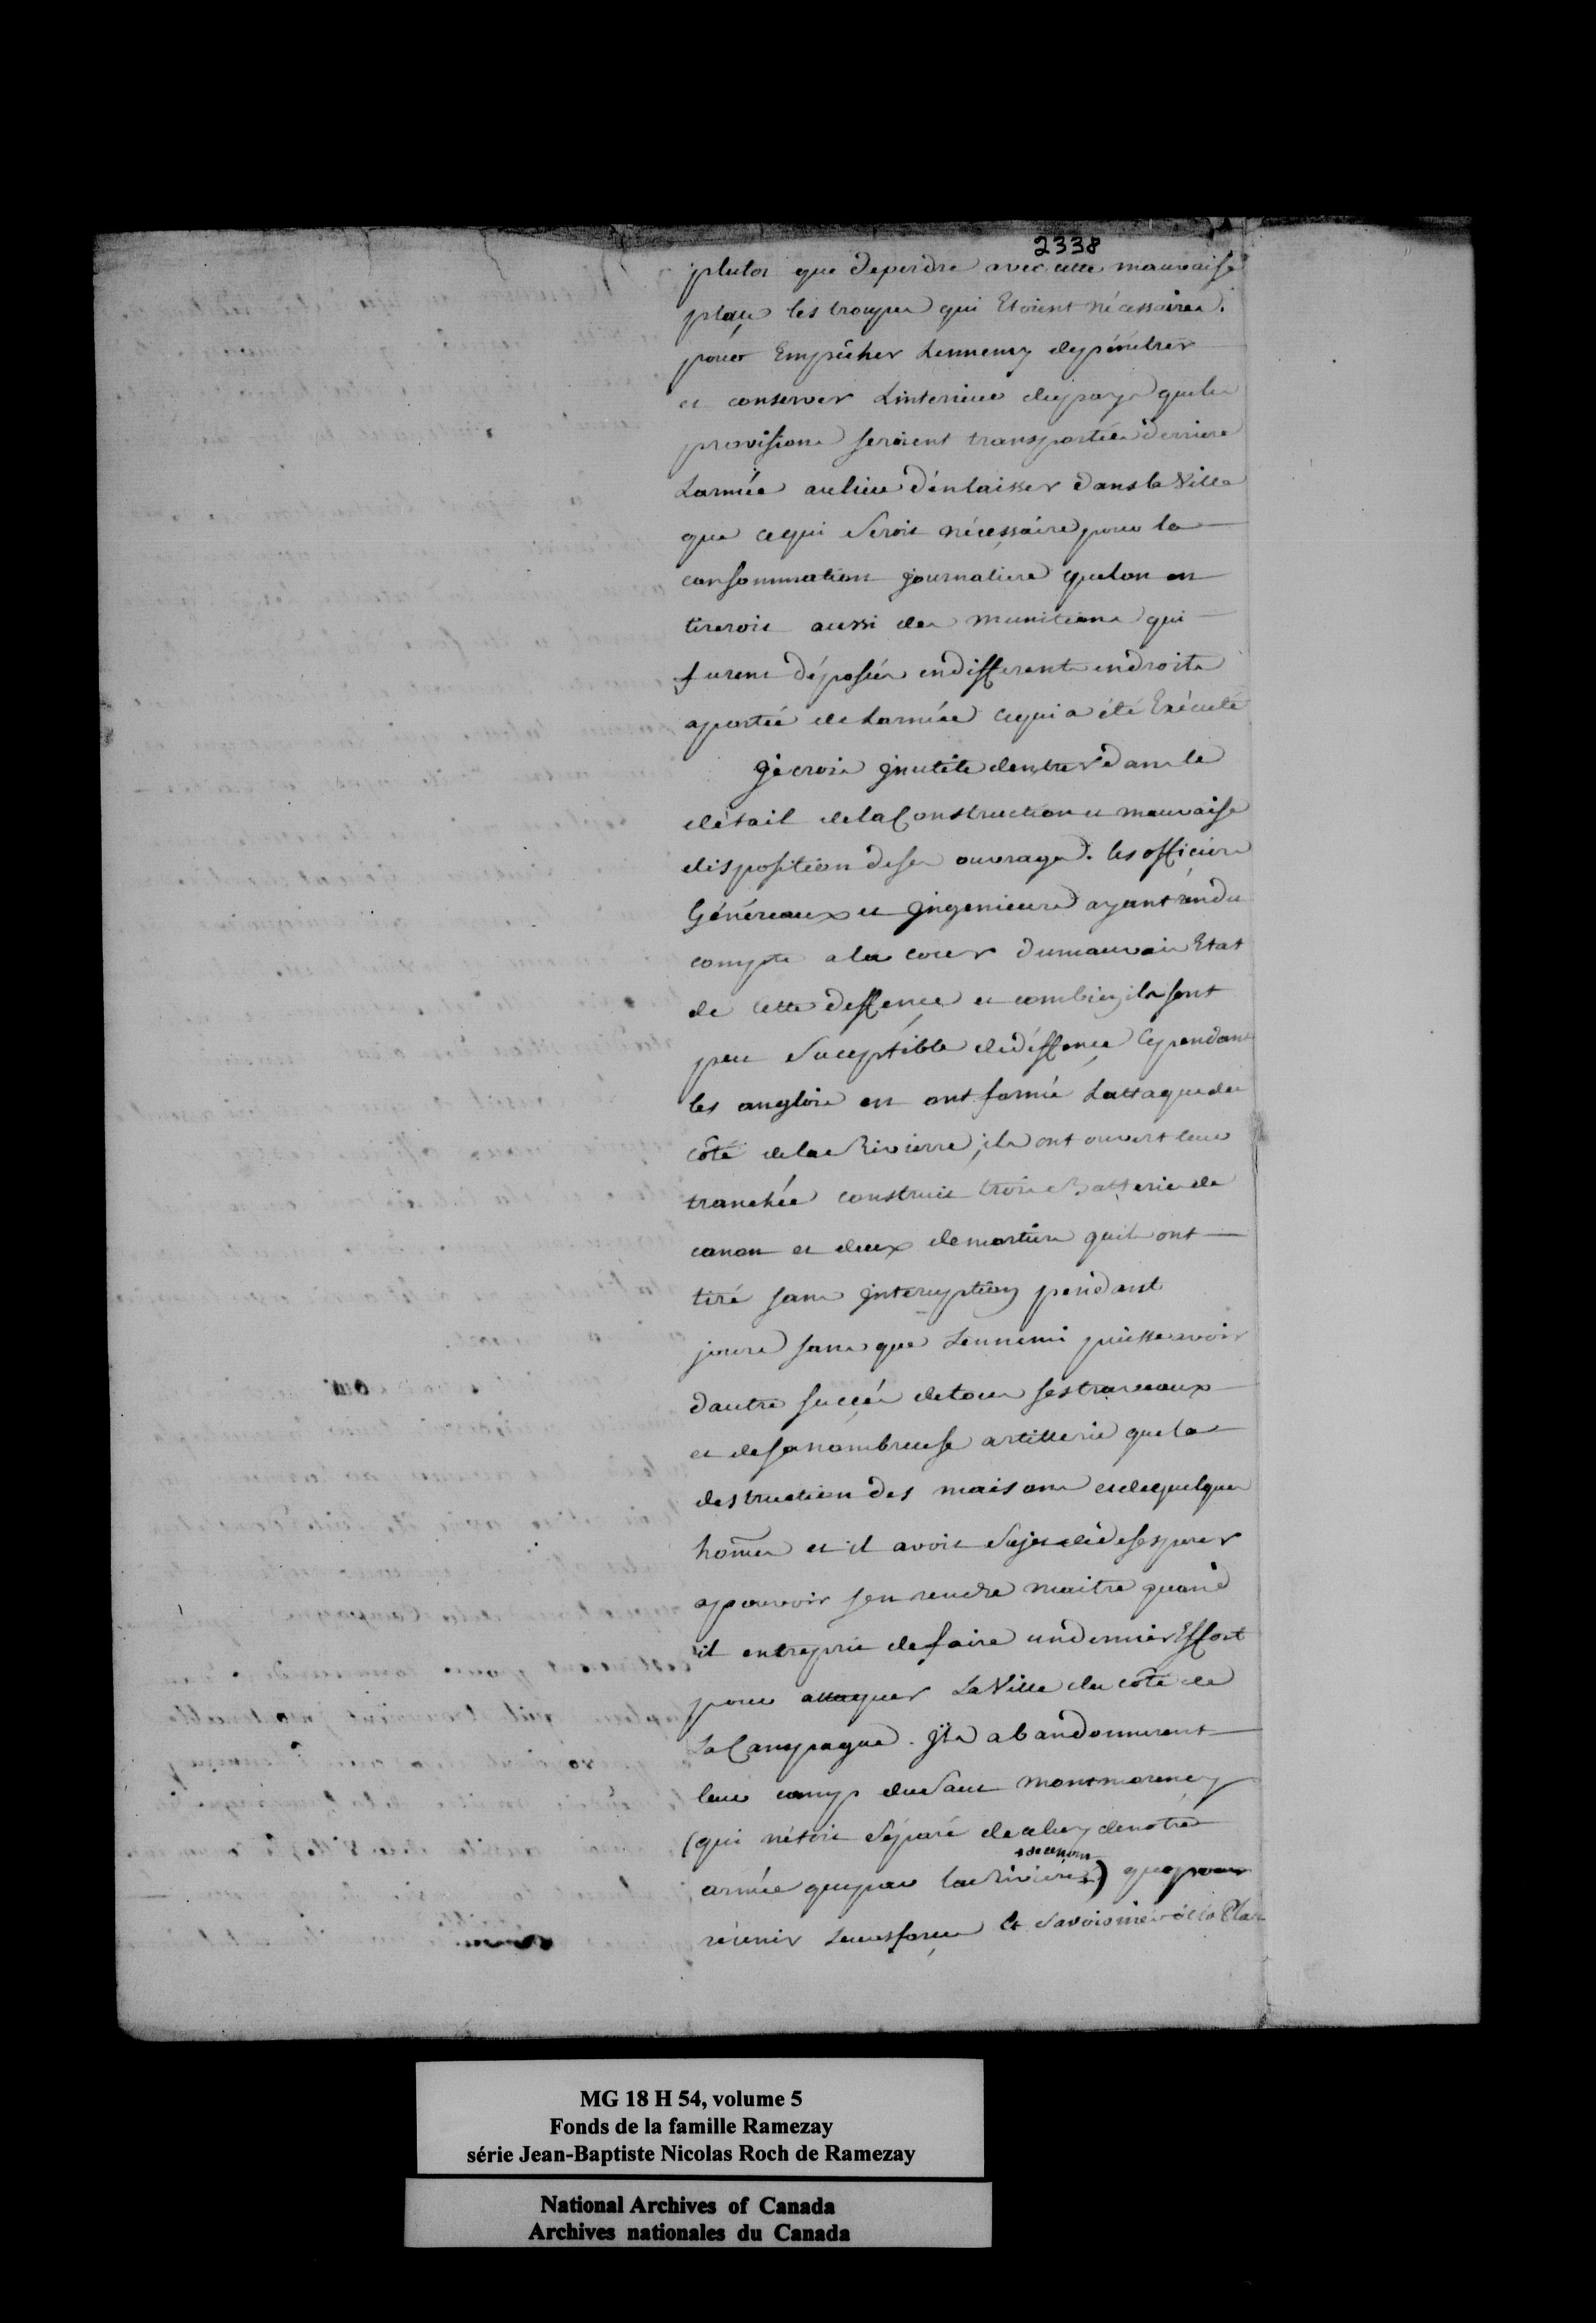 2338
plutot que deperdre avec cette mauvaise
place les troupes qui Etoient nécessaires.
pour Empêcher Lennemy depénétrer
et conserver Linterieur dupays queles
provisions seroient transportées derriere
Larmée aulieu d'énlaisser dans la Ville
que cequi Seroit nécessaire pour la
consommation journaliere quelon en
tireroit aussi des munitions qui
furent déposées endifferents endroits
aportée de Larmée cequi a été Exécuté
Je crois jnutile dentrer dans le
détail delaConstruction et mauvaise
disposition deses ouvrages. les officiers
Généreaux et jngenieurs ayant rendu
compte a la cour dumauvais Etat
de cette deffence et combien ils sont
peu Suceptible dedéffence Cependant
les anglois en ont formé Lattaque du
côté dela Rivierre, ils ont ouvert leur
tranchée construit trois Batterie de
canon et deux demortiers quils ont
tiré sans jnteruption pendant
jours sans que Lennemi puisse avoir
dautre succés detous sestraveaux
et desanombreuse artillerie quela
destruction des maisons et dequelques
hom̃es et il avoit Sujet dedesesperer
apouvoir sen rendre maitre quand
il entreprit defaire undernier Effort
pour attaquer La Ville du côté de
la Campagne. jls abandonnerent
leur camp du Saut montmorency
(qui nétoit Séparé de celuy denotre
+ de cenom
armée quepar la Riviere +) que pour
réunir Leurs forces et Savoisiner de la Place
MG 18 H 54, volume 5
Fonds de la famille Ramezay
série Jean-Baptiste Nicolas Roch de Ramezay
National Archives of Canada
Archives nationales du Canada